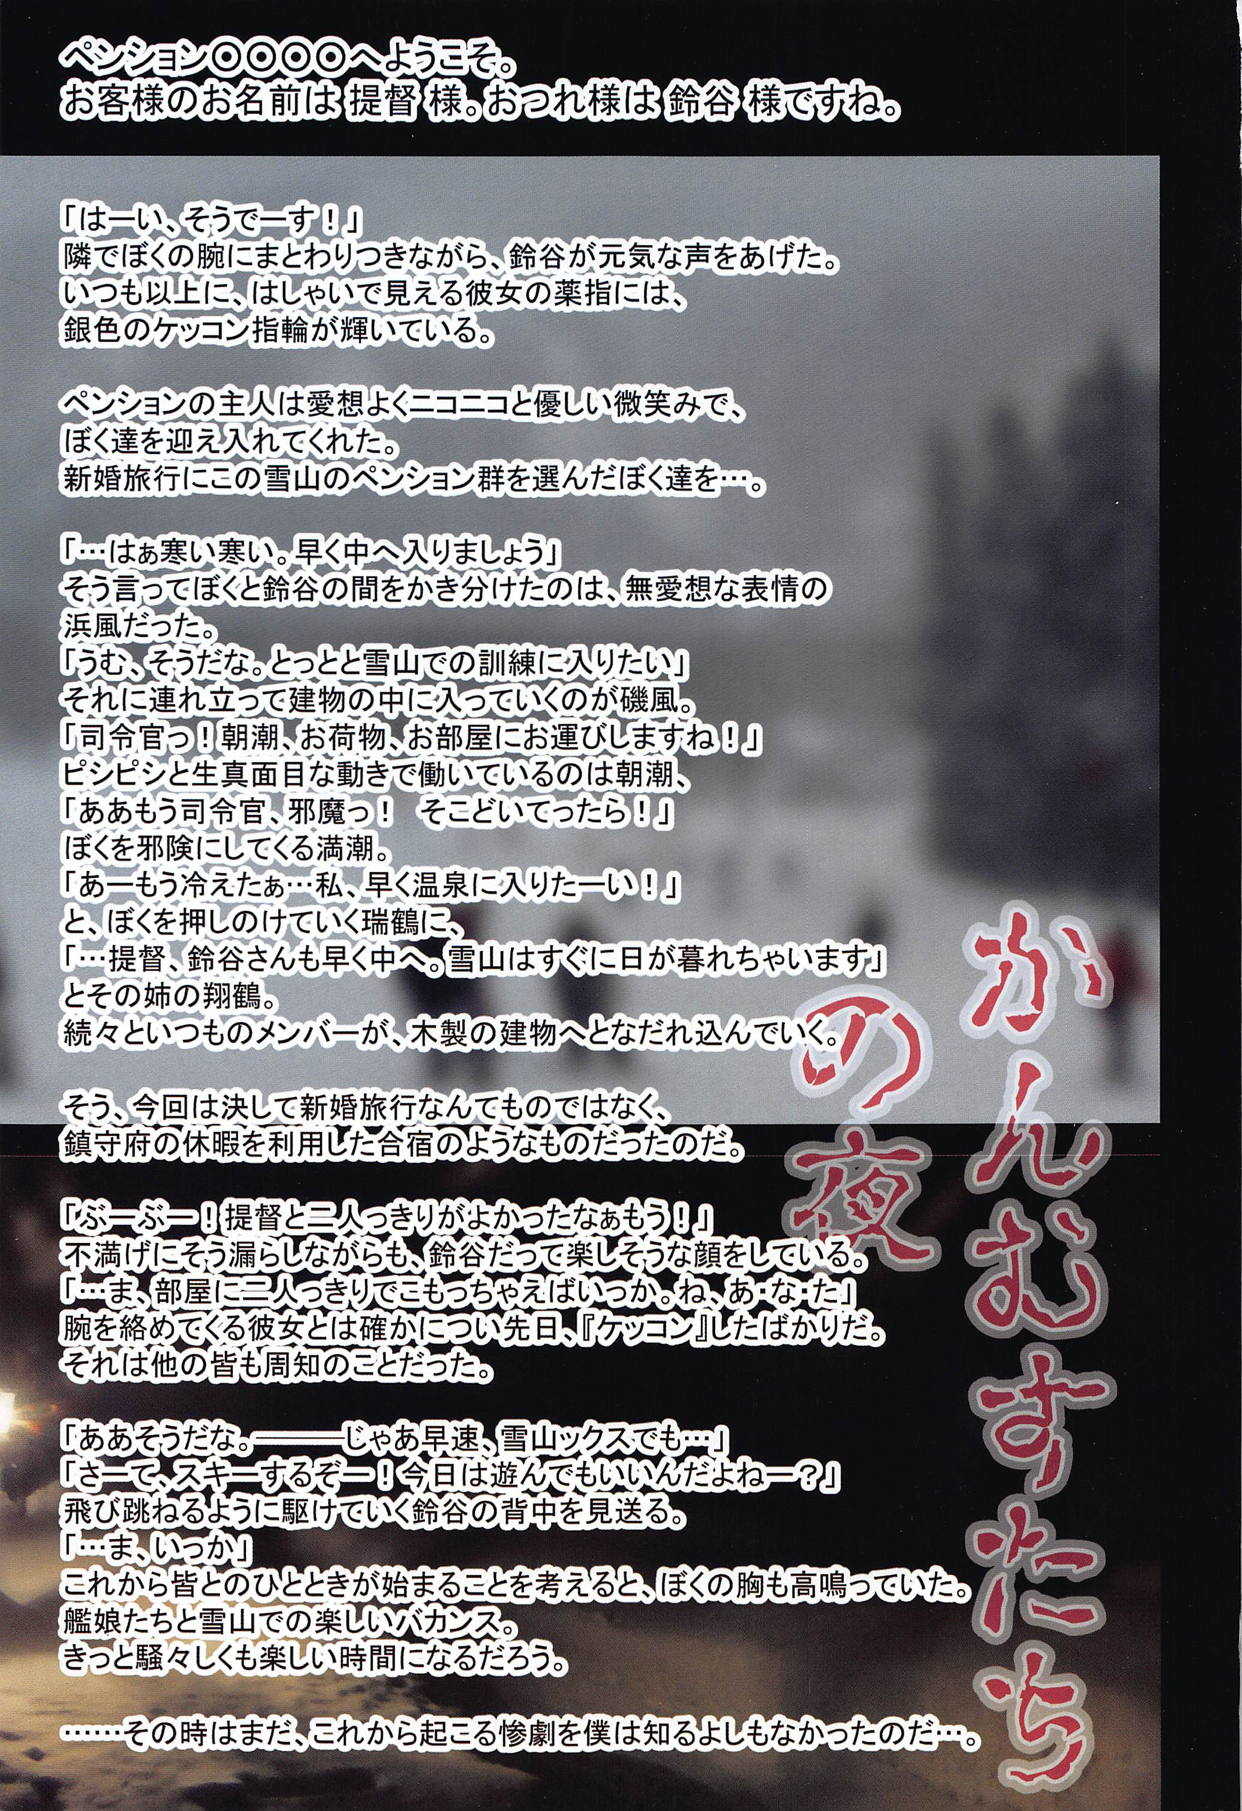 ペンション〇〇〇〇へようこそ。
お客様のお名前は 提督 様。おつれ様は 鈴谷 様ですね。
「はーい、そうでーす！」
隣でぼくの腕にまとわりつきながら、鈴谷が元気な声をあげた。
いつも以上に、はしゃいで見える彼女の薬指には、
銀色のケッコン指輪が輝いている。
ペンションの主人は愛想よくニコニコと優しい微笑みで、
ぼく達を迎え入れてくれた。
新婚旅行にこの雪山のペンション群を選んだぼく達を…。
「…はぁ寒い寒い。早く中へ入りましょう」
そう言ってぼくと鈴谷の間をかき分けたのは、無愛想な表情の
浜風だった。
「うむ、そうだな。とっとと雪山での訓練に入りたい」
それに連れ立って建物の中に入っていくのが磯風。
「司令官っ！朝潮、お荷物、お部屋にお運びしますね！」
ピシピシと生真面目な動きで働いているのは朝潮、
「ああもう司令官、邪魔っ！　そこどいてったら！」
ぼくを邪険にしてくる満潮。
「あーもう冷えたぁ…私、早く温泉に入りたーい！」
と、ぼくを押しのけていく瑞鶴に、
「…提督、鈴谷さんも早く中へ。雪山はすぐに日が暮れちゃいます」
とその姉の翔鶴。
続々といつものメンバーが、木製の建物へとなだれ込んでいく。
そう、今回は決して新婚旅行なんてものではなく、
鎮守府の休暇を利用した合宿のようなものだったのだ。
「ぶーぶー！提督と二人っきりがよかったなぁもう！」
不満げにそう漏らしながらも、鈴谷だって楽しそうな顔をしている。
「…ま、部屋に二人っきりでこもっちゃえばいっか。ね、あ・な・た」
腕を絡めてくる彼女とは確かについ先日、『ケッコン』したばかりだ。
それは他の皆も周知のことだった。
「ああそうだな。―――じゃあ早速、雪山ックスでも…」
「さーて、スキーするぞー！今日は遊んでもいいんだよねー？」
飛び跳ねるように駆けていく鈴谷の背中を見送る。
「…ま、いっか」
これから皆とのひとときが始まることを考えると、ぼくの胸も高鳴っていた。
艦娘たちと雪山での楽しいバカンス。
きっと騒々しくも楽しい時間になるだろう。
……その時はまだ、これから起こる惨劇を僕は知るよしもなかったのだ…。
かんむすたち
の夜